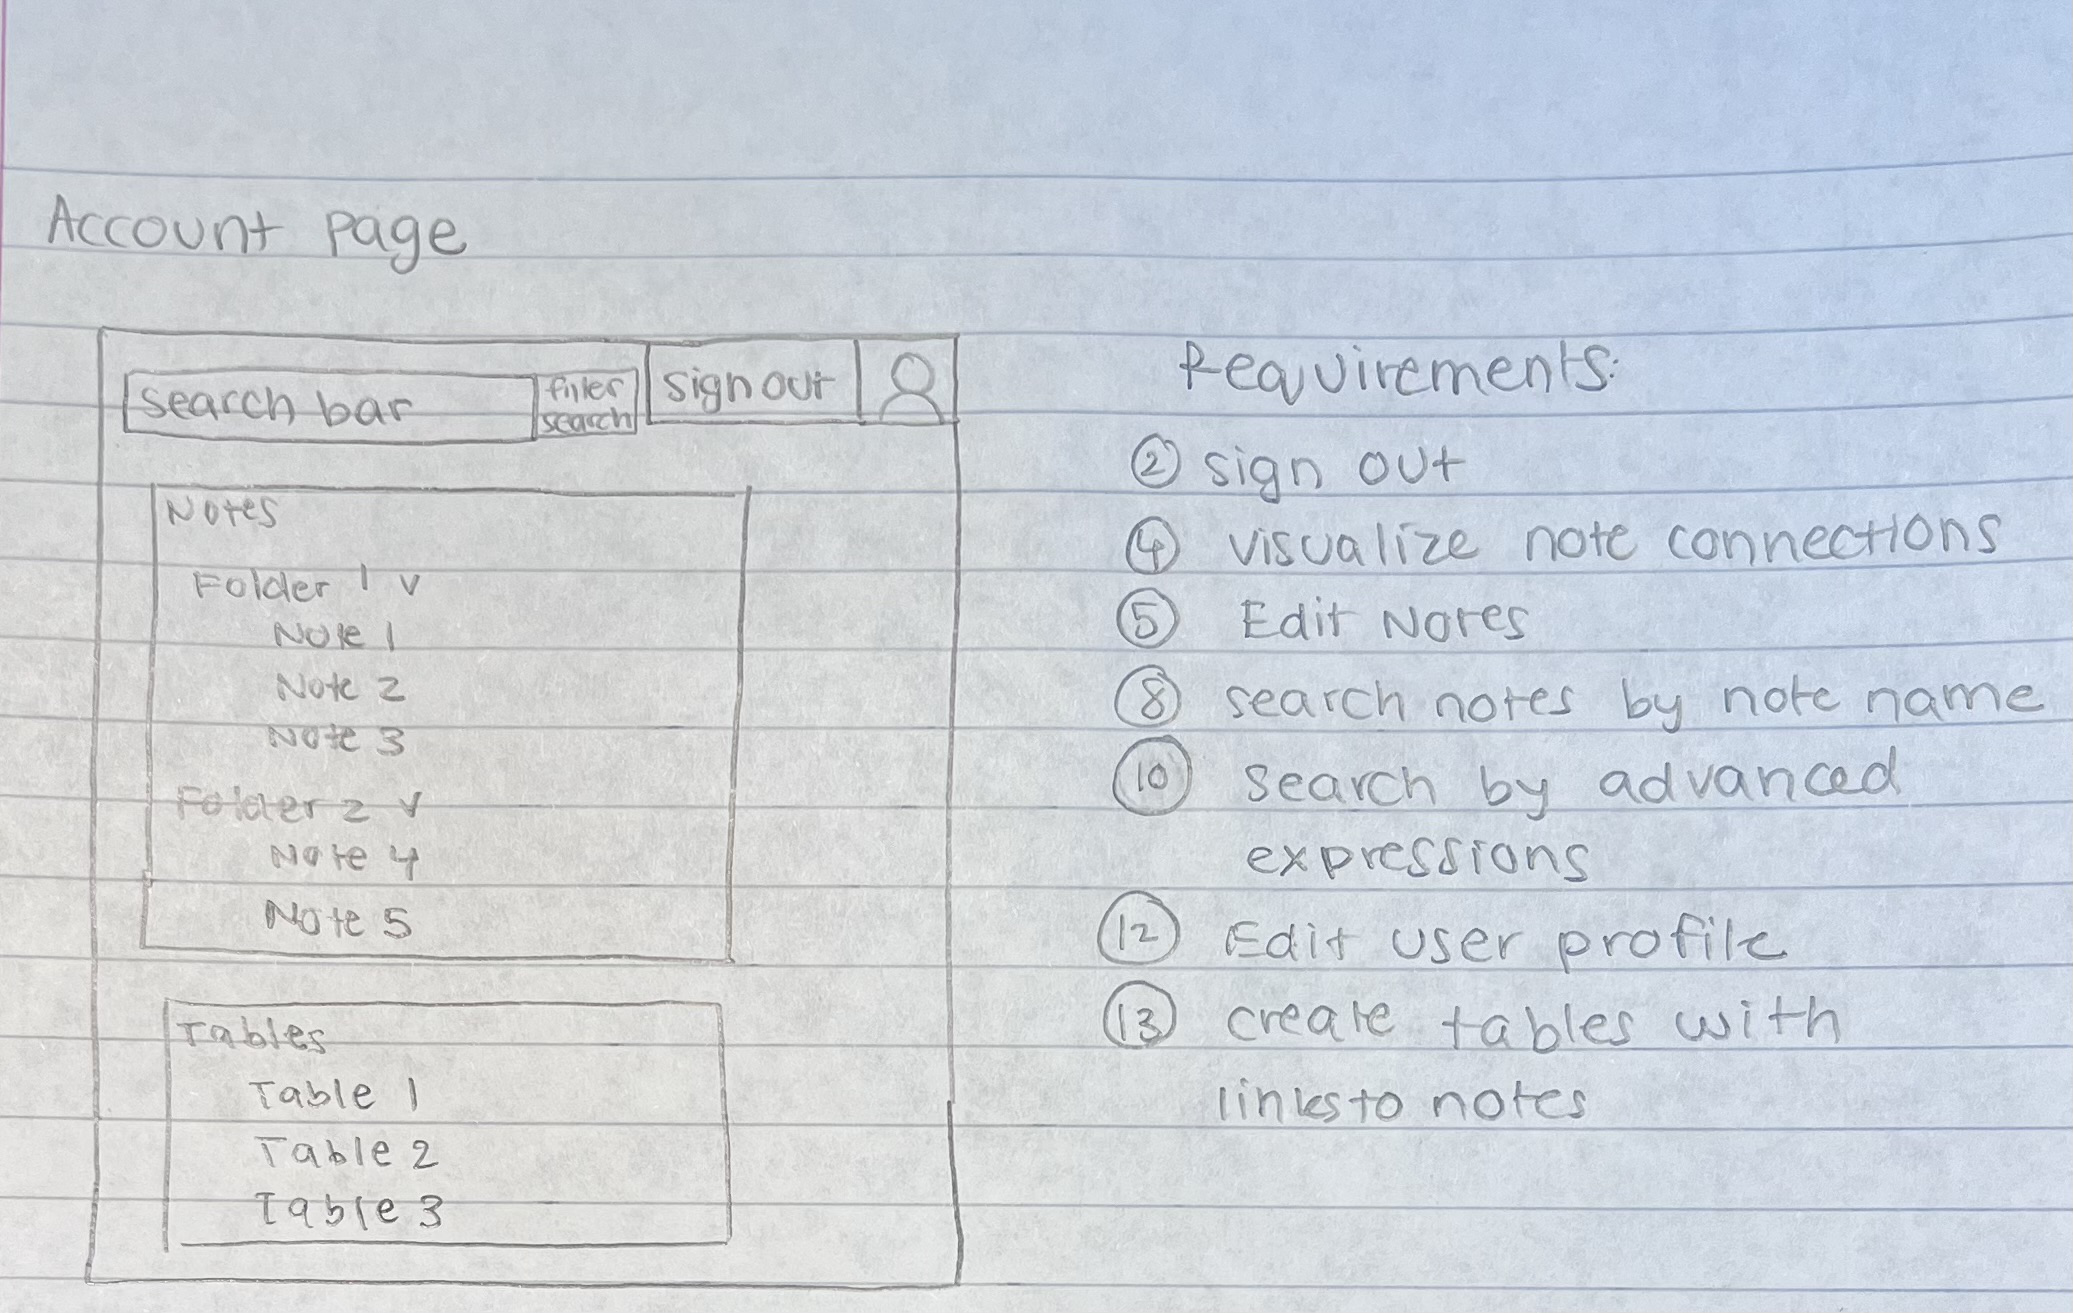 Account page
search bar
filter
search
sign out
Notes
Folder 1 v
Note 1
Note 2
Note 3
Folder 2 v
Note 4
Note 5
Tables
Table 1
Table 2
Table 3
Requirements:
2 sign out
4 visualize note connections
5 Edit Notes
8 search notes by note name
10 search by advanced
expressions
12 Edit user profile
13 create tables with
links to notes